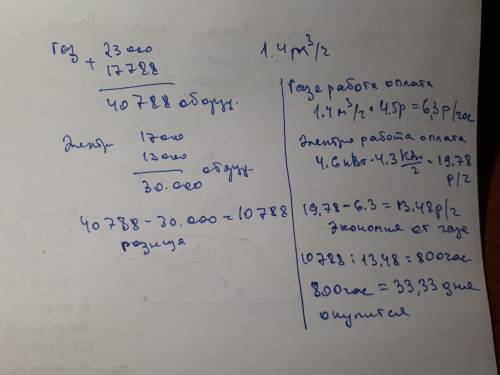 Газ + 23 000
17788
40788 оборуд.
Электр 17000
13000
30.000 оборуд
40788 - 30.000 = 10788
розница
1.4 м³/г
Газе работа оплата
1.4 м³/г • 4.5р = 6,3 р/час
Электро работа оплата
4.6 кВт • 4.3 = 19.78
р/г
19,78 - 6.3 = 13,48 р/г
Экономия от газа
10788 : 13,48 = 800 час
800 час = 33,33 дня
окупится